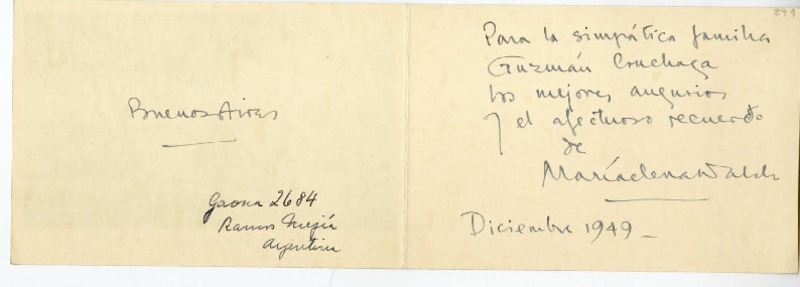 Buenos Aires
Gaona 2684
Ramos Mejía
Argentina
Para la simpática familia
Guzmán Cruchaga
los mejores augurios
y el afectuoso recuerdo
de
María elena Walsh
Diciembre 1949_